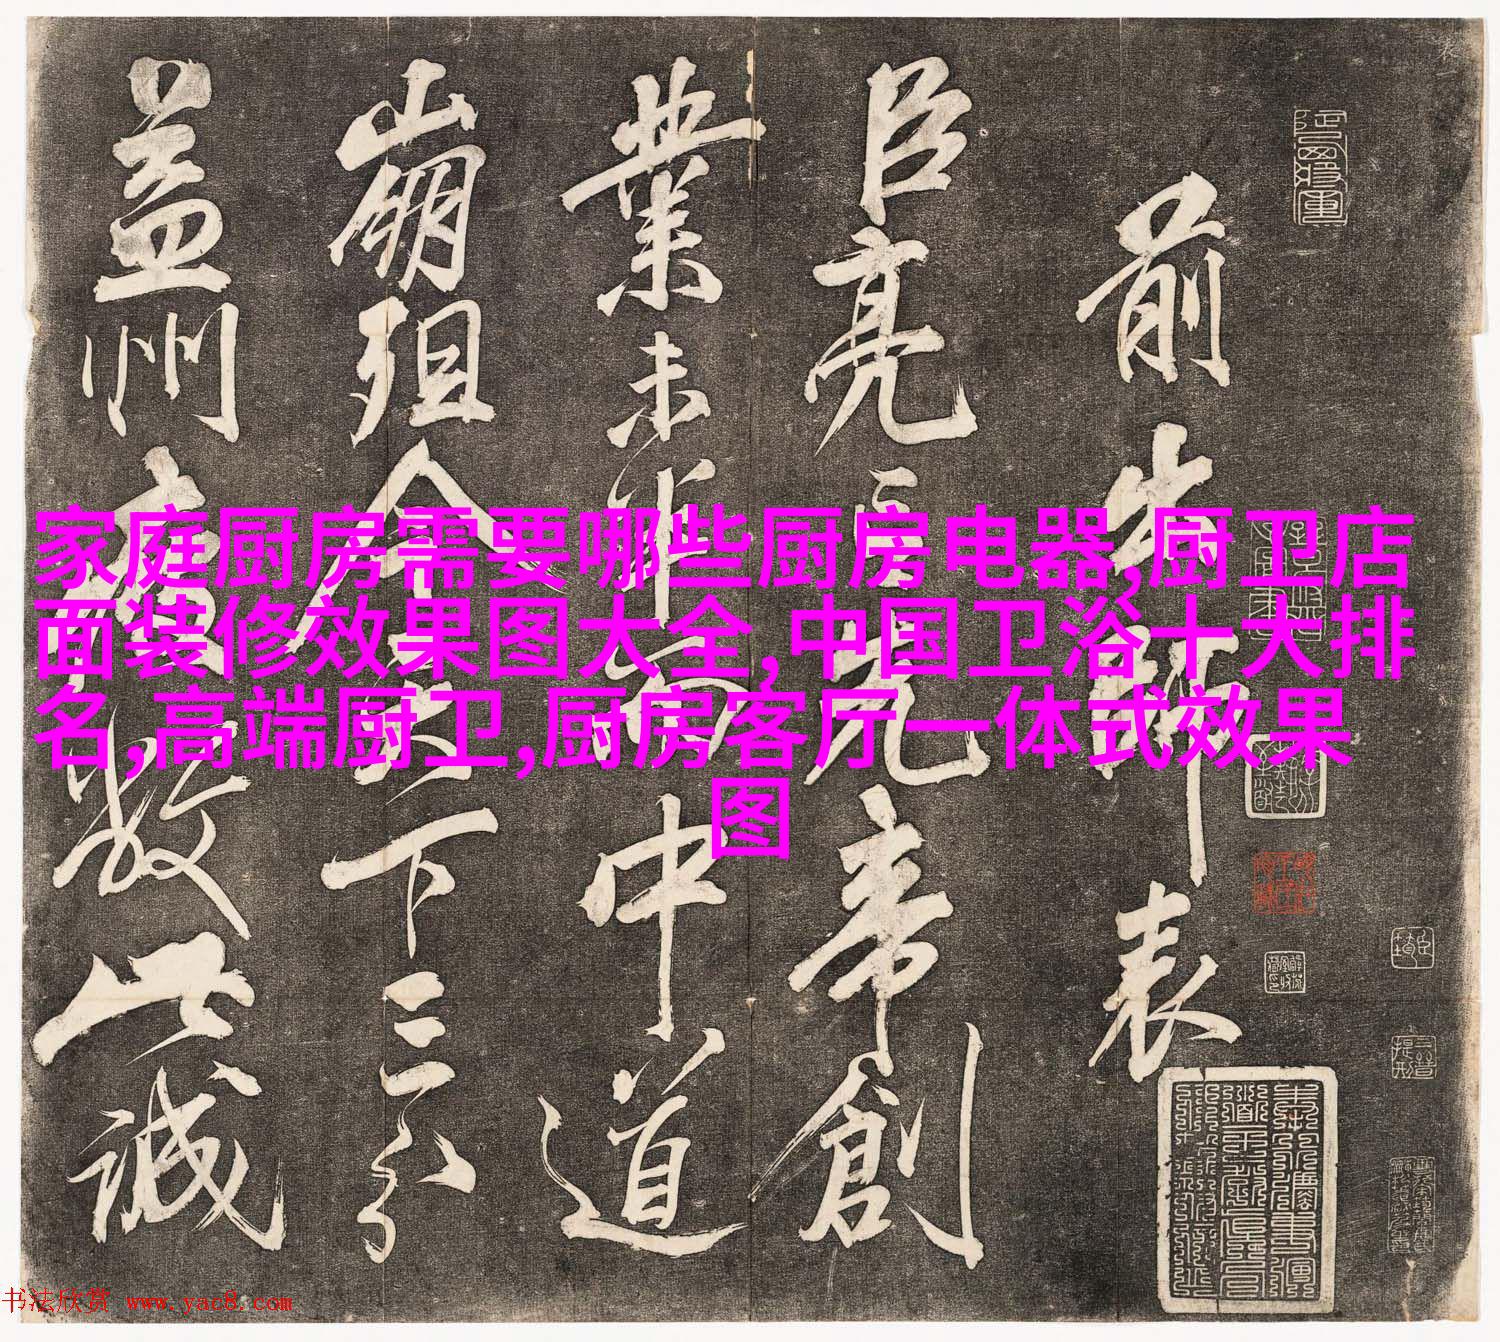 前出師表
臣亮言先帝創
業未半而中道
崩殂今天下三分
益州疲敝此誠
家庭厨房需要哪些厨房电器,厨卫店
面装修效果图大全,中国卫浴十大排
名,高端厨卫,厨房客厅一体式效果
图
书法欣赏 www.yac8.com